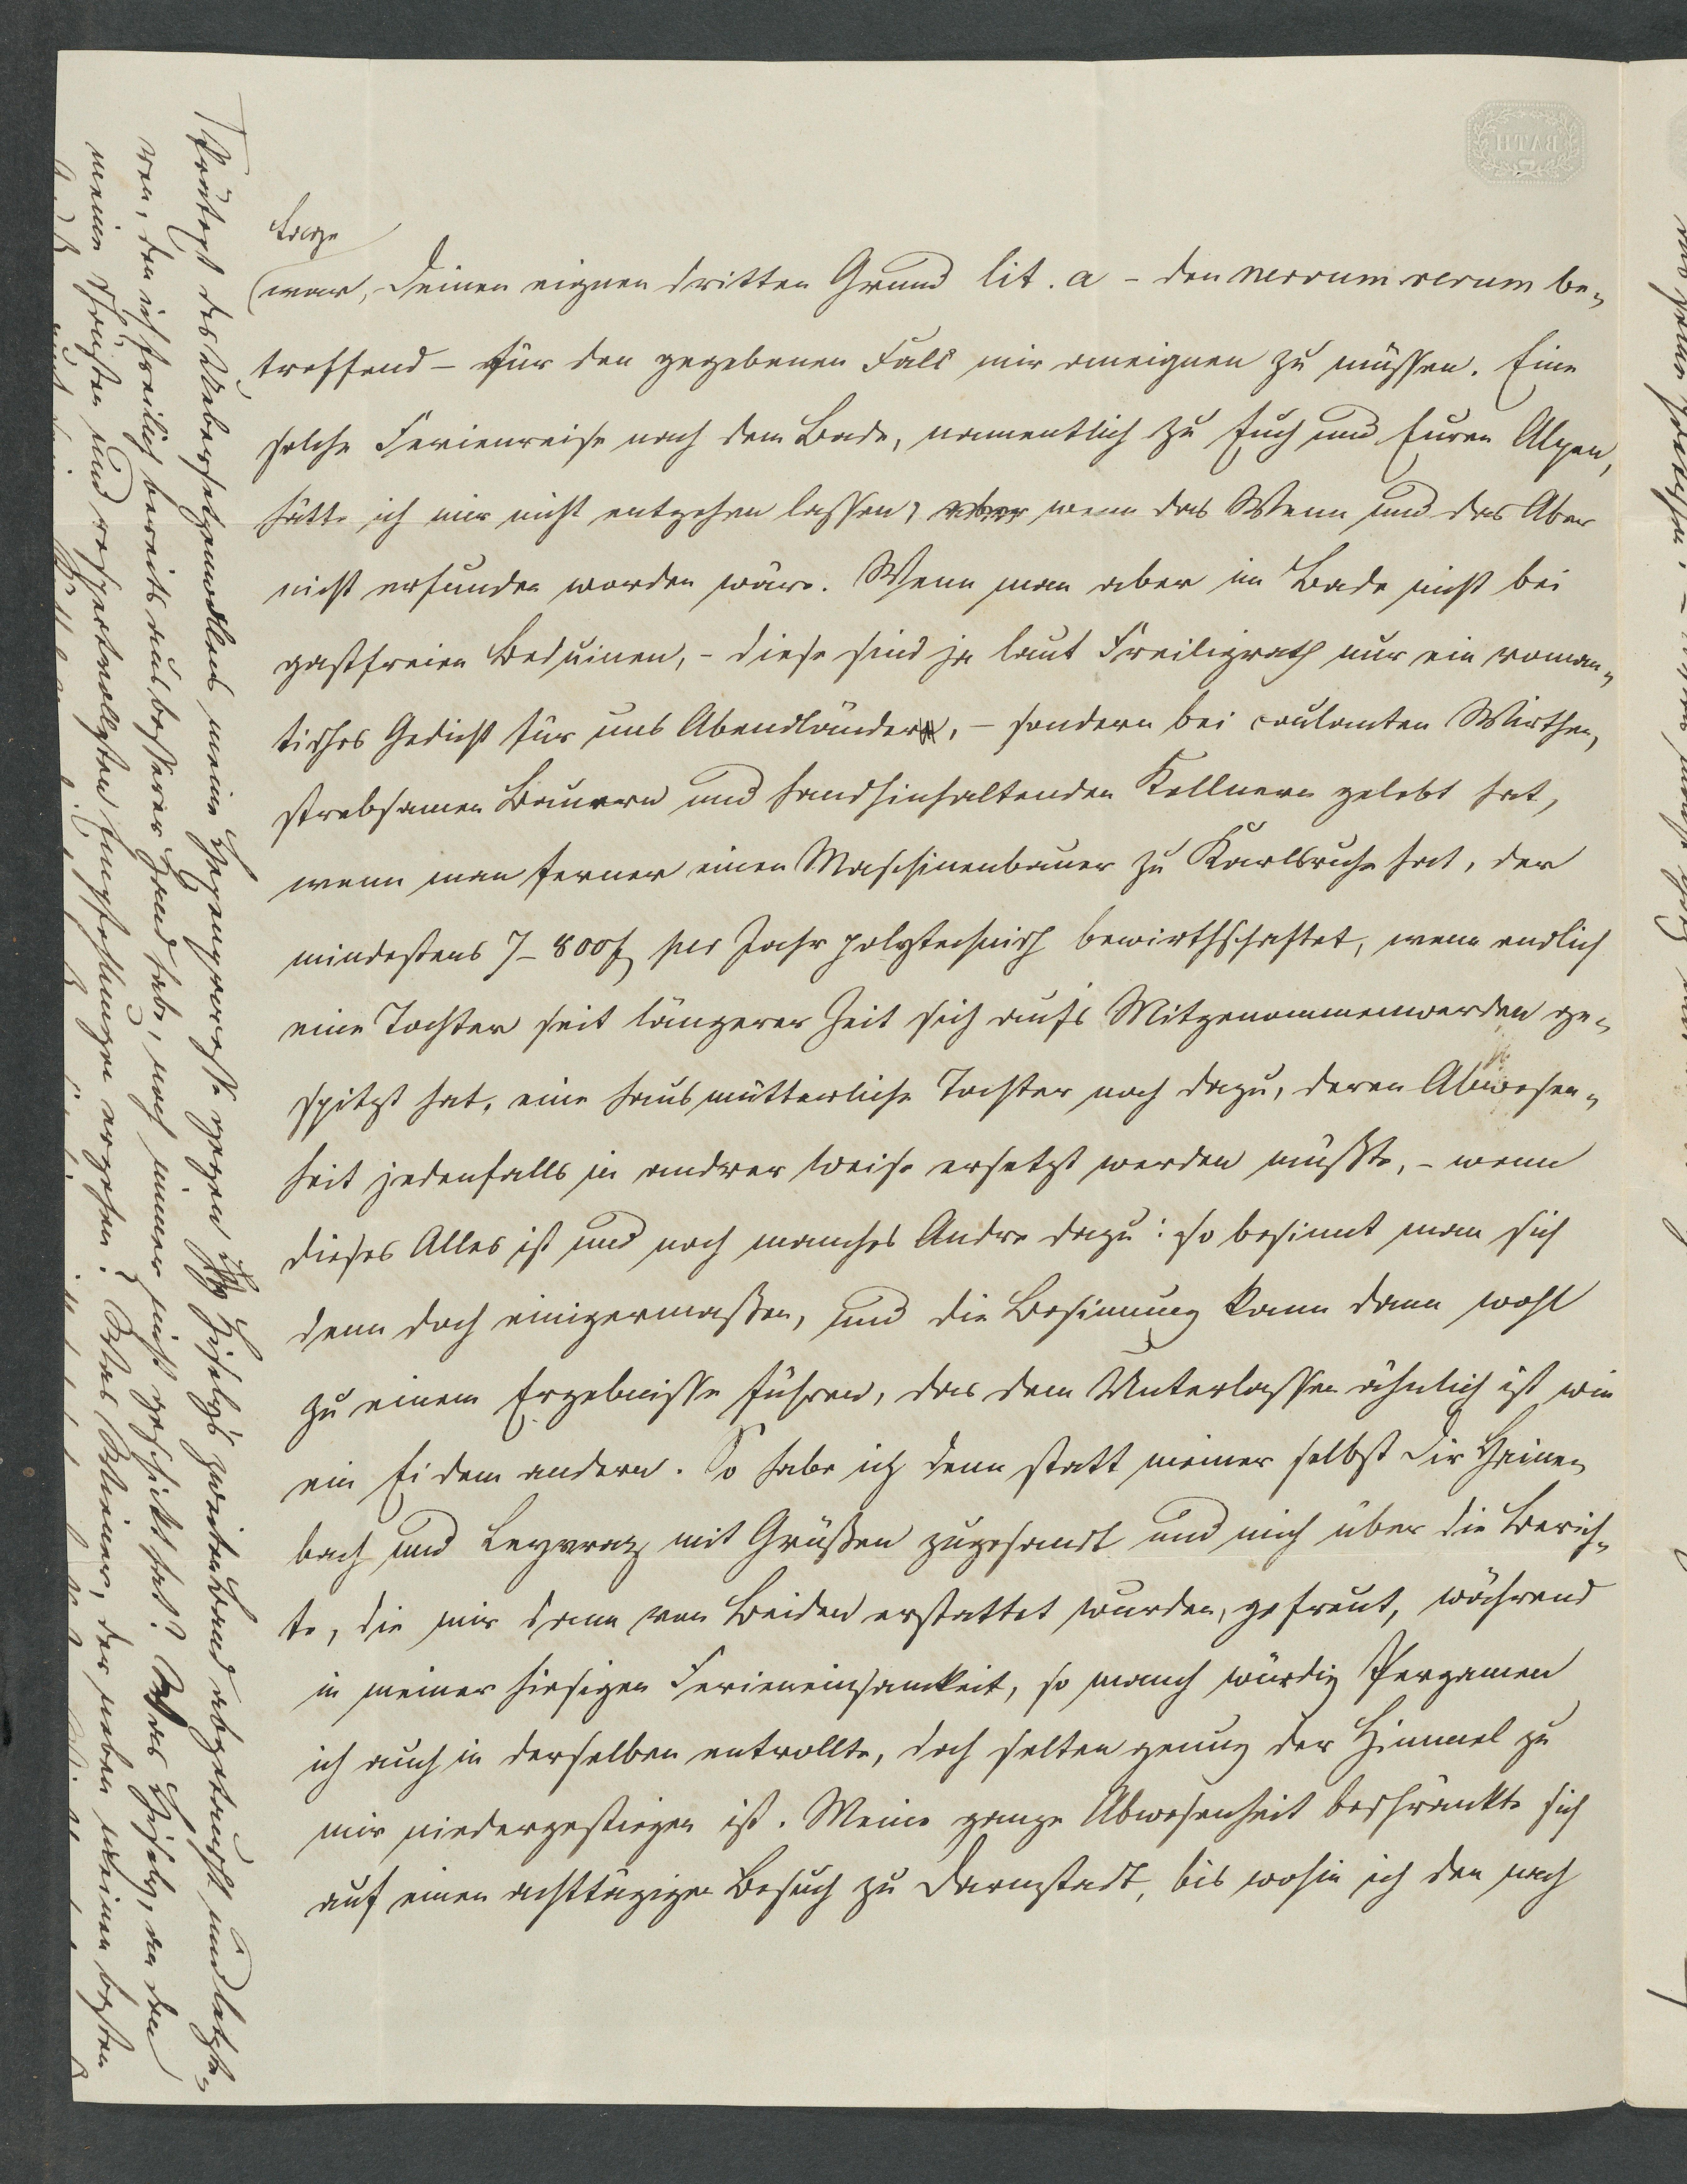 Lage
war, Deinen eignen dritten Grund lit. a – den nervum rerum be-
treffend – für den gegebenen Fall mir aneignen zu müssen. Eine
solche Ferienreise nach dem Bade, namentlich zu Euch und Euren Alpen,
hätte ich mir nicht entgehen lassen, wenn das Wenn und das Aber
nicht erfunden worden wäre. Wenn man aber im Bade nicht bei
gastfreien Beduinen, – diese sind ja laut Freiligrath nur ein roman-
tisches Gedicht für uns Abendländer, – sondern bei coulanten Wirthen,
strebsamen Bauern und handhinhaltenden Kellnern gelebt hat,
wenn man ferner einen Maschinenbauer zu Karlsruhe hat, der
mindestens 7–800 f per Jahr polytechnisch bewirthschaftet, wenn endlich
eine Tochter seit längerer Zeit sich auf's Mitgenommenwerden ge-
spitzt hat, eine hausmütterliche Tochter noch dazu, deren Abwesen-
heit jedenfalls in andrer Weise ersetzt werden müßte, – wenn
dieses Alles ist und noch manches Andre dazu: so besinnt man sich
denn doch einigermaßen, und die Besinnung kann dann wohl
zu einem Ergebnisse führen, das dem Unterlassen ähnlich ist wie
ein Ei dem andern. So habe ich denn statt meiner selbst Dir Heinen-
bach und Leyvraz mit Grüßen zugesandt und mich über die Berich-
te, die mir dann von Beiden erstattet wurden, gefreut, während
in meiner hiesigen Ferieneinsamkeit, so manch würdig Pergamen
ich auch in derselben entrollte, doch selten genug der Himmel zu
mir niedergestiegen ist. Meine ganze Abwesenheit beschränkte sich
auf einen achttägigen Besuch zu Darmstadt, bis wohin ich den nach
des Uebersetzens meine gegen Hisely's zweiten Band abgetauscht und letzte-
ren, den ich freilich bereits aus besserer Hand habe, noch immer nicht geschickt hat? Was Hisely, an den
meine Grüßen und respectvollsten Empfehlungen ergehen? Was der neben meinen besten
BATH